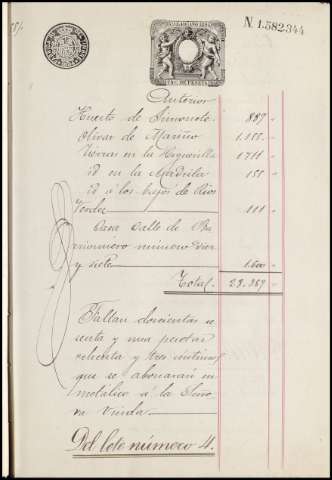 N. 1.582.344
Anterior
Huerto de Simonete 887 "
Olivar de Mariño 1.155 "
Tierras en la Higuerilla 1711 "
id en la
id á los bajos de Rios
Tender 111 "
Casa Calle de
numero diez
y siete 1.600 "
Total. 23.867 "
Faltan doscientas
y una pesetas
ochenta y tres centimos
que se abonarán en
metálico á la Seño
ra viuda.
Del lote número 4.